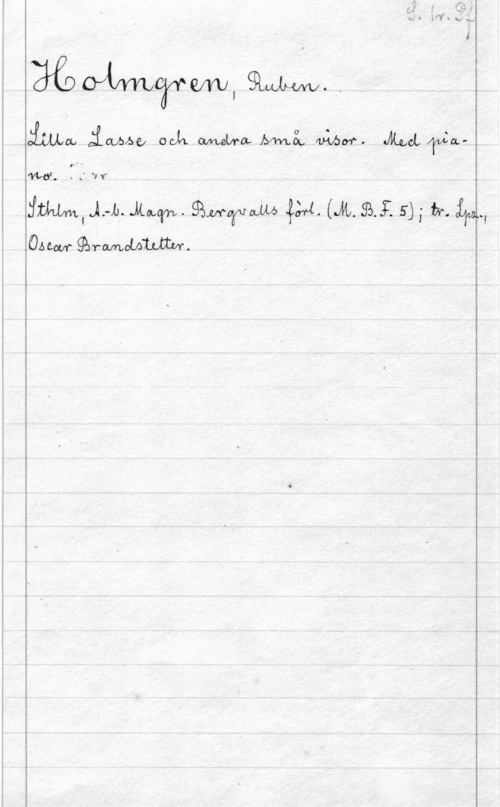 S. tr. Pf
Holmgren, Ruben.
Lilla Lasse och andra små visor. Med pia-
no.
Sthlm, A.-b. Magn. Bergvalls förl. (M. B. F. 5); tr. Lpz.,
Oscar Brandstetter.